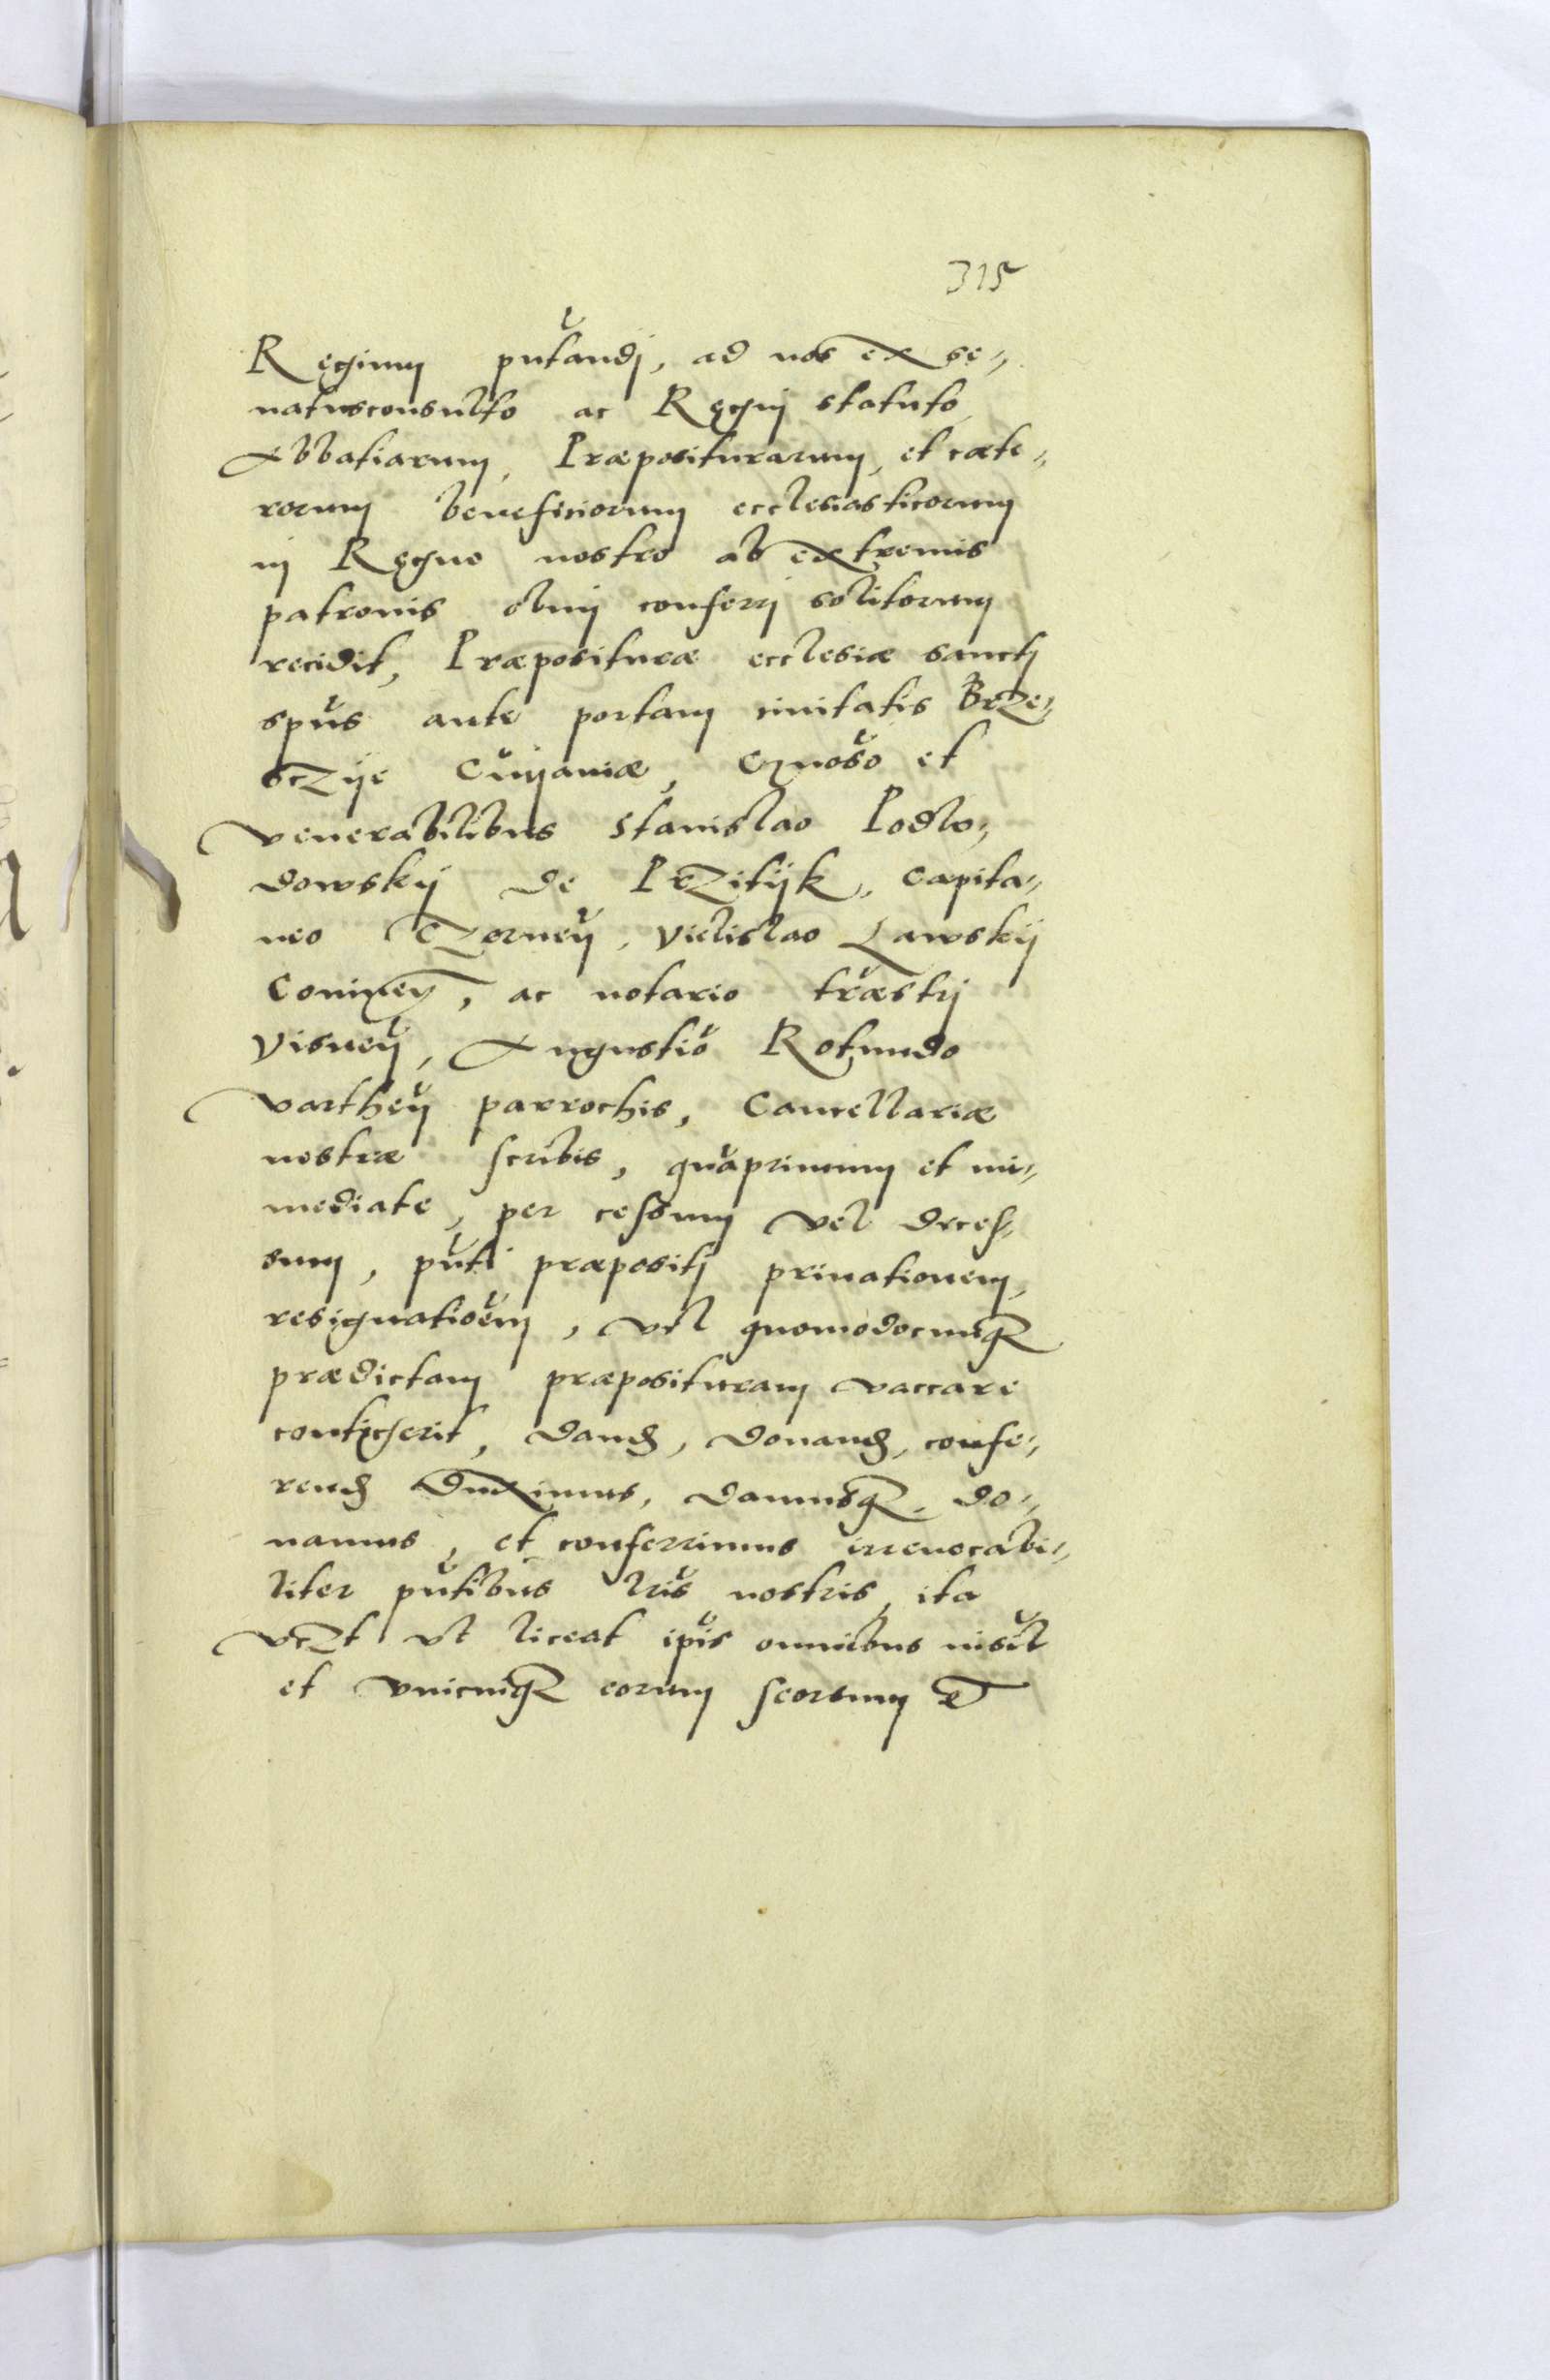 315
Regium pñtandj, ad nos ex se-
natusconsulto ac Regnj statuto
Abbatiarum, Præpositurarum, et cæte-
rorum beneficiorum ecclesiasticorum
in Regno nostro ab extremis
patronis olim conferrj solitorum
recidit, Præposituræ ecclesiæ sanctj
spũs ante portam ciuitatis Brze-
sczije Cuijauiæ, Gnõso et
Venerabilibus Stanislao Podlo-
dowskij de Przitijk, Capita-
neo Czorneñ, Vielislao Lawskij
ac notario trræstrj
Visneñ, Augustiõ Rotundo
Vartheñ parrochis, Cancellariæ
nostræ scribis, quãprimum et im-
mediate, per cessum vel deces-
sum, pñti præpositj priuationem,
resignatioẽm, vel quomodocunqz
prædictam præposituram vaccare
contigerit, dand, donand, confe-
rend duximus, damusqz, do-
namus, et conferrimus irreuocabi-
liter pñtibus lris nostris, ita
vczt vt liceat ipis omnibus insil
et vnicuiqz eorum seorsum et